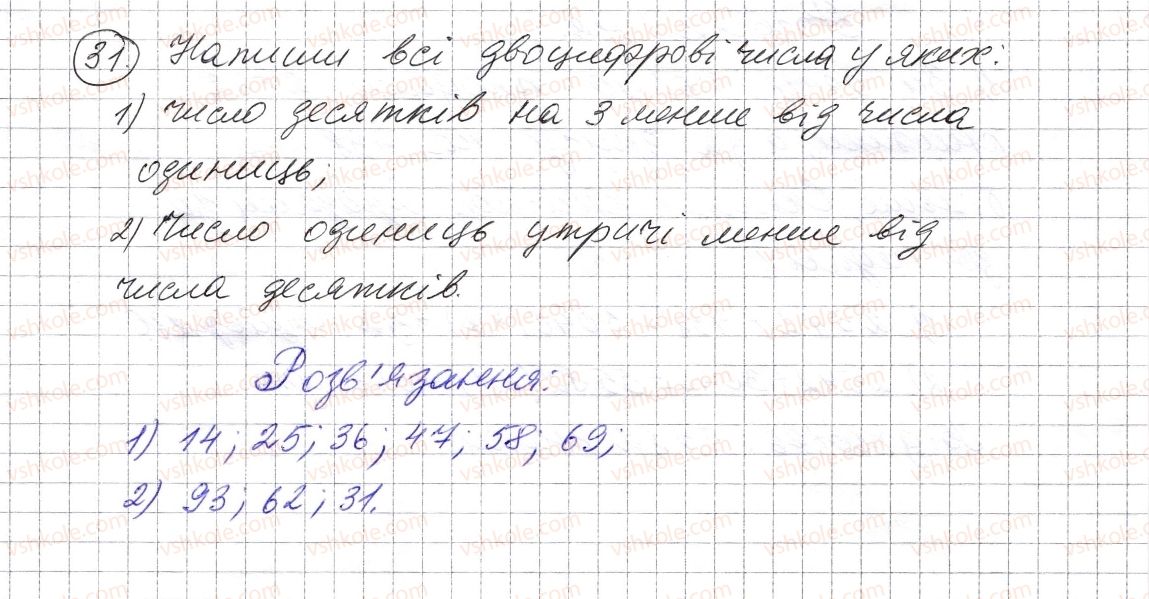 31. Напиши всі двоцифрові числа у яких:
1) число десятків на 3 менше від числа
одиниць;
2) Число одиниць утричі менше від
числа десятків.
Розв'язання:
1) 14; 25; 36; 47; 58; 69;
2) 93; 62; 31.